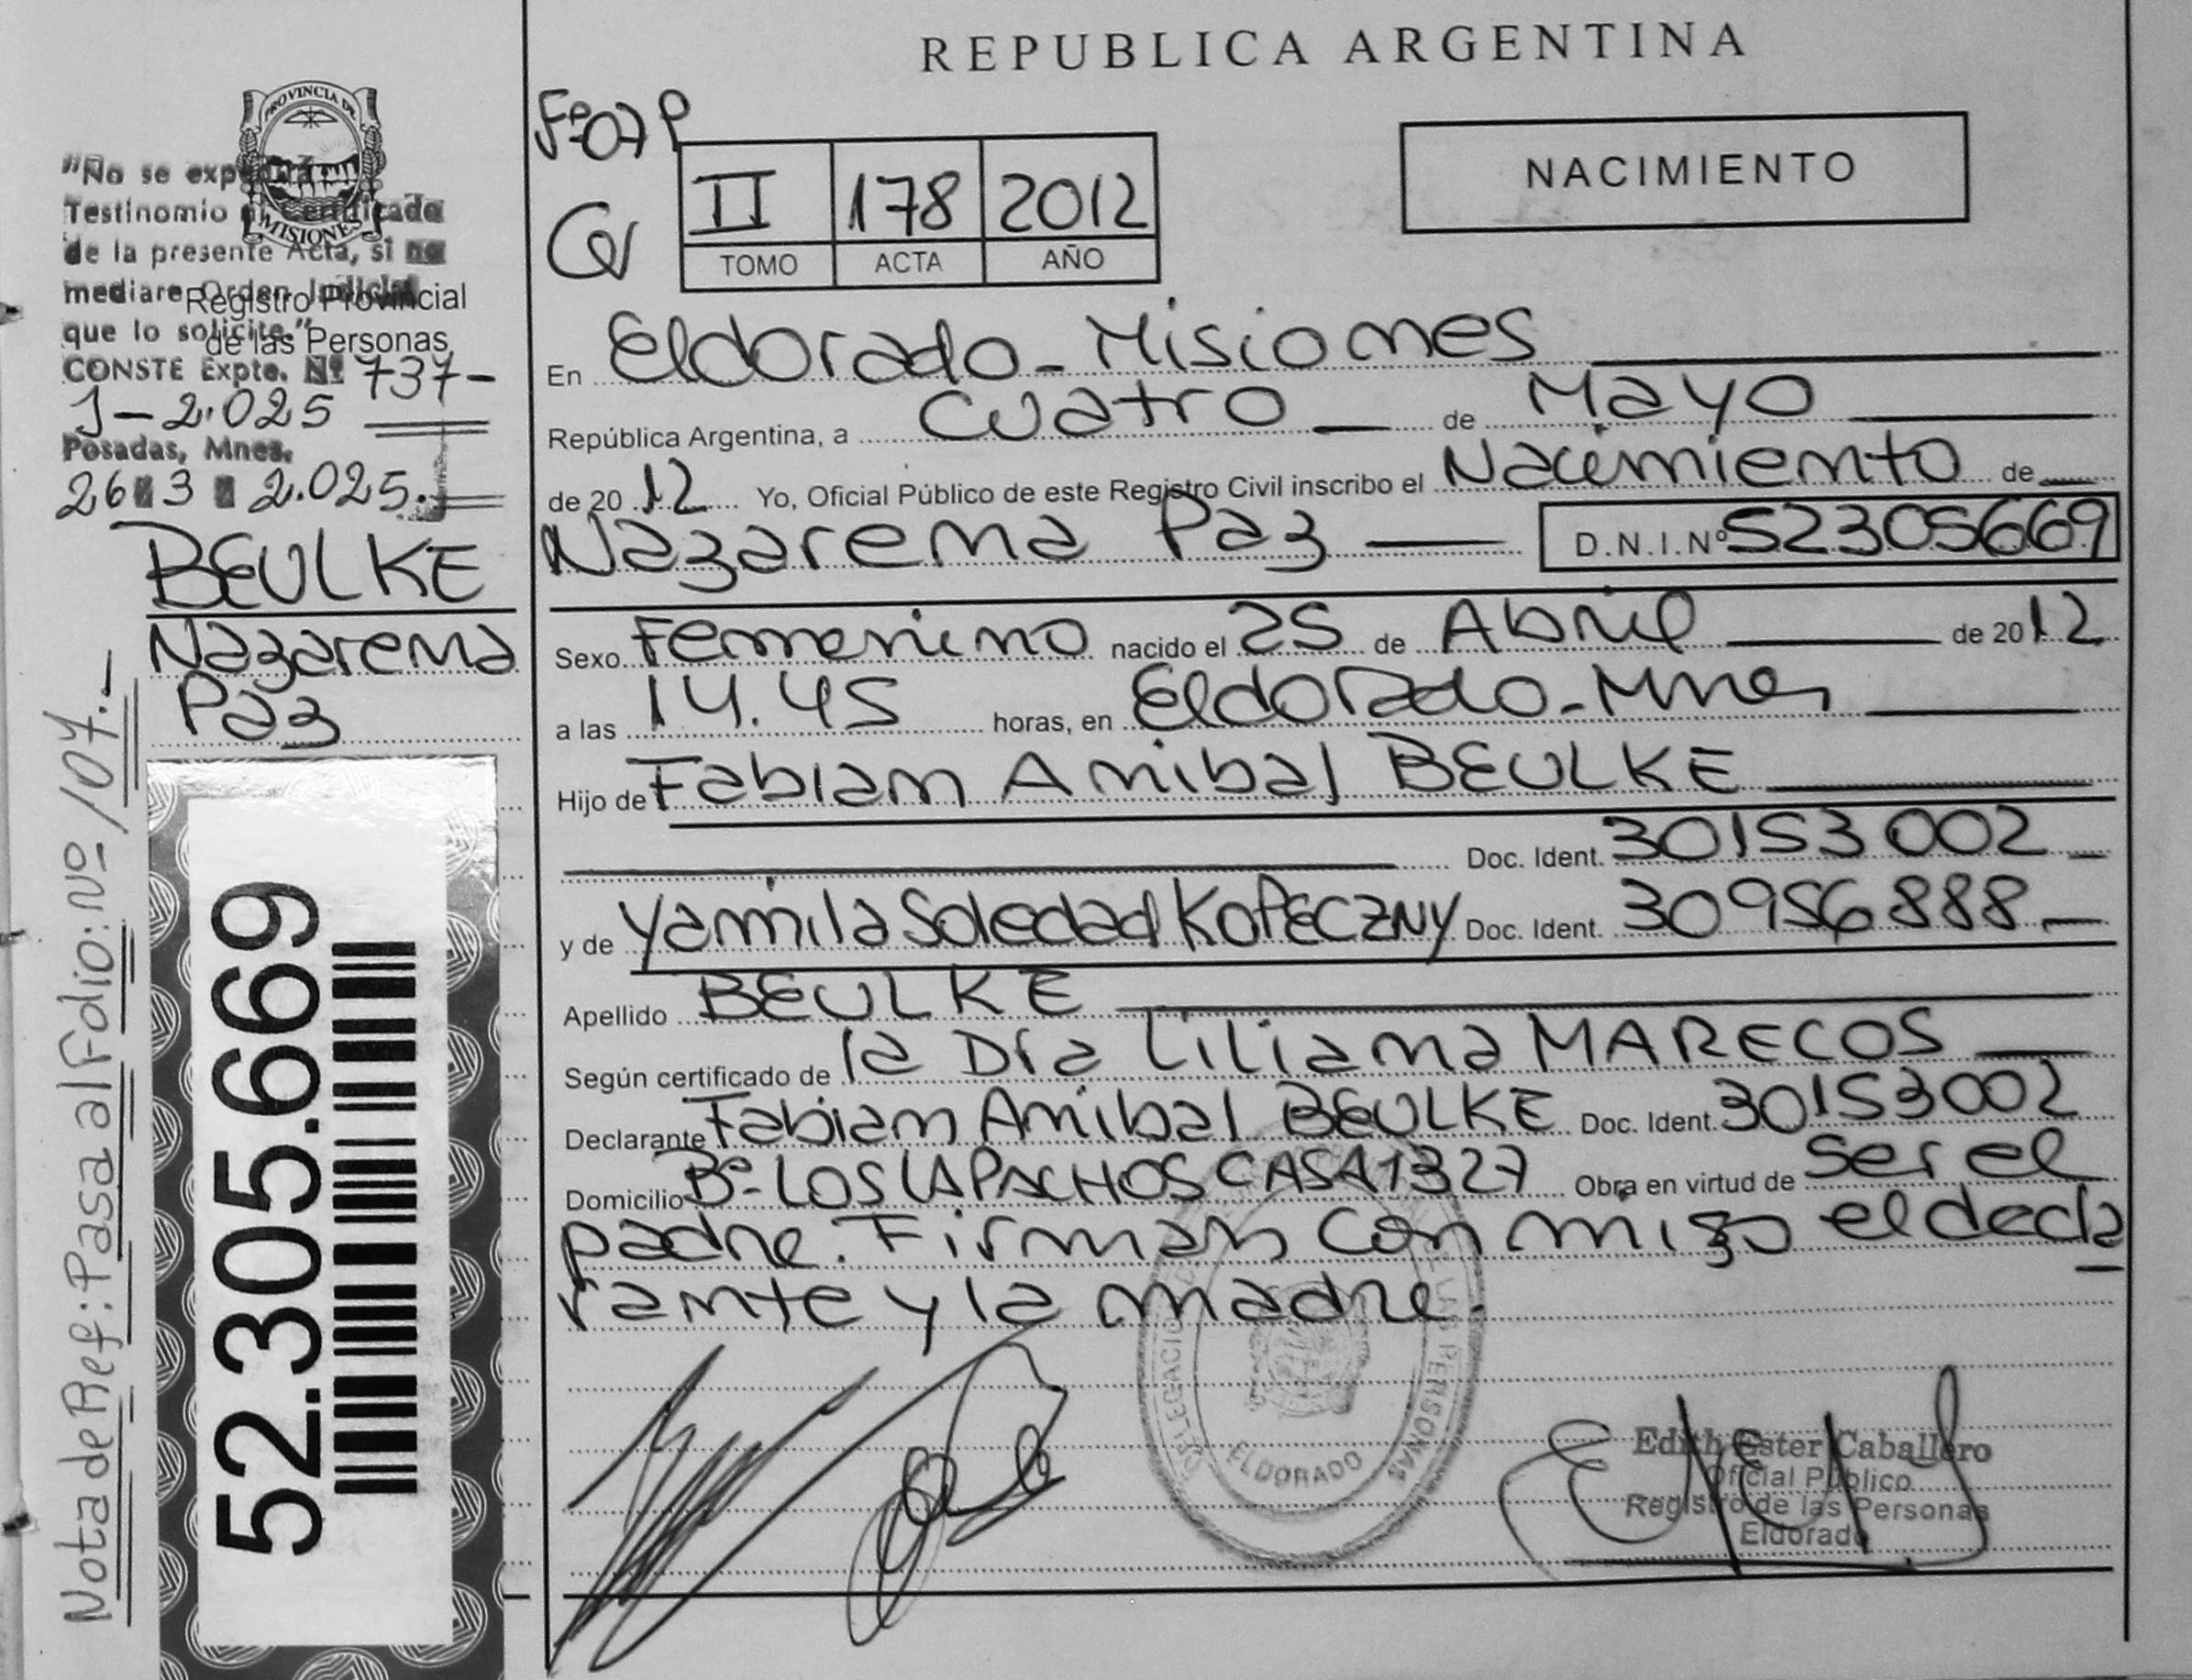 REPUBLICA ARGENTINA
PROVINCIA DE
MISIONES
Registro Provincial
de las Personas
"No se expedirá
Testinomio ni Certificado
de la presente Acta, si no
mediare Orden Judicial
que lo solicite."
CONSTE Expte. Nº 737-
J-2.025
Posadas, Mnes.
26 3 2.025.
BEULKE
Nazarena
Paz
Nota de Ref: Pasa al Folio: Nº 107.-
52.305.669
Fº07P
II 178 2012
TOMO ACTA AÑO
NACIMIENTO
En Eldorado - Misiones
República Argentina, a Cuatro de Mayo
de 2012 Yo, Oficial Público de este Registro Civil inscribo el Nacimiento de
Nazarena Paz D.N.I.Nº 52305669
Sexo Femenino nacido el 25 de Abril de 2012
a las 14.45 horas, en Eldorado - Mnes
Hijo de Fabian Anibal BEULKE
Doc. Ident. 30153002
y de Yamila Soledad KOPECZNY Doc. Ident. 30956888
Apellido BEULKE
Según certificado de la Dra Liliana MARECOS
Declarante Fabian Anibal BEULKE Doc. Ident. 30153002
Domicilio Bº LOS LAPACHOS CASA 1327 Obra en virtud de ser el
padre. Firman con migo el decla
rante y la madre.
DELEGACIÓN DE LAS PERSONAS
ELDORADO
Edith Ester Caballero
Oficial Público
Registro de las Personas
Eldorado